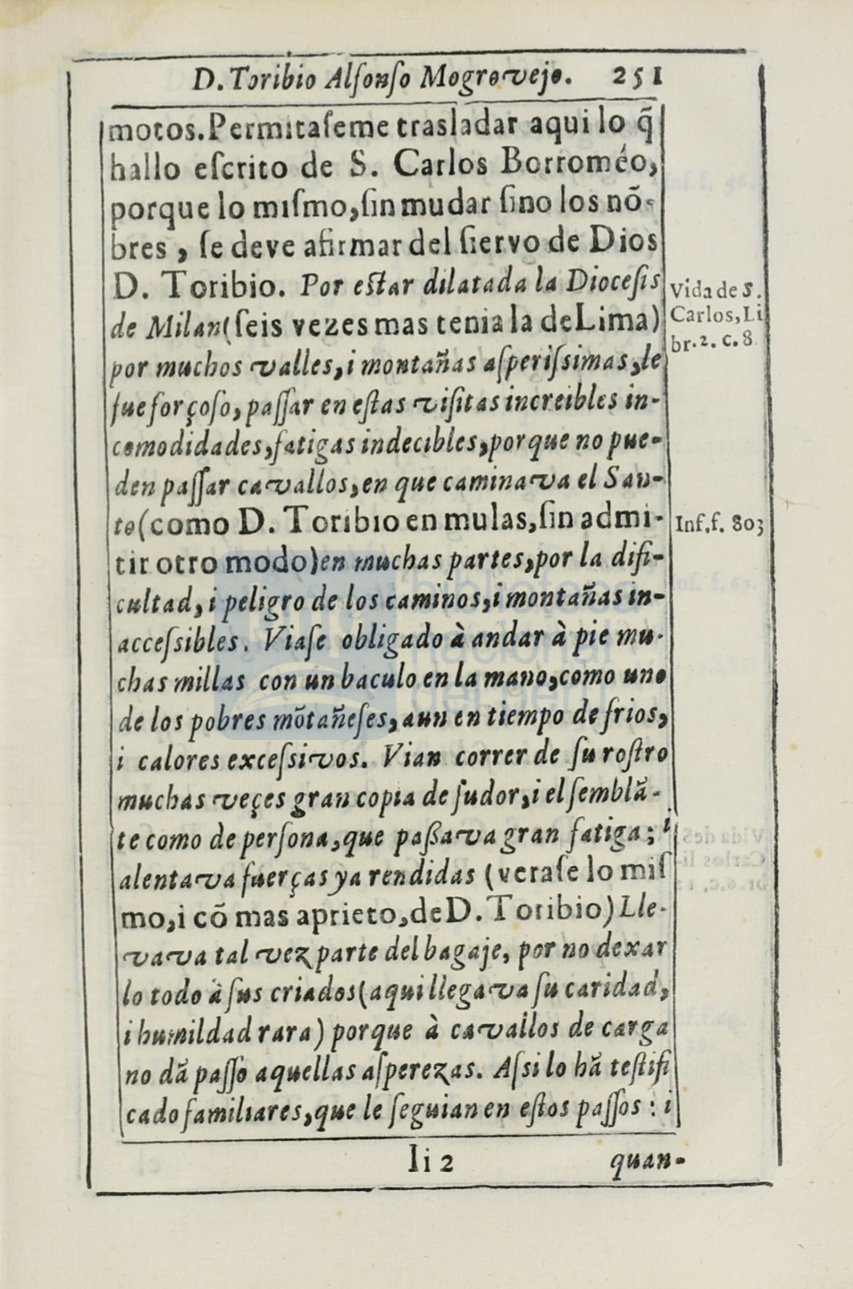 D. Toribio Alſonſo Mogrovejo. 251
motos. Permitaſeme trasladar aqui lo q̃
hallo eſcrito de S. Carlos Borroméo,
porque lo miſmo, ſin mudar ſino los nõ-
bres, ſe deve afirmar del ſiervo de Dios
D. Toribio. Por eſtar dilatada la Dioceſis
de Milan (ſeis vezes mas tenia la de Lima)
por muchos valles, i montañas aſperiſsimas, le
fue forçoſo, paſſar en eſtas viſitas increibles in-
comodidades, fatigas indecibles, porque no pue-
den paſſar cavallos, en que caminava el San-
to (como D. Toribio en mulas, ſin admi-
tir otro modo) en muchas partes, por la difi-
cultad, i peligro de los caminos, i montañas in-
acceſsibles. Viaſe obligado à andar à pie mu-
chas millas con un baculo en la mano, como uno
de los pobres mõtañeſes, aun en tiempo de frios,
i calores exceſsivos. Vian correr de ſu roſtro
muchas veçes gran copia de ſudor, i el ſemblã-
te como de perſona, que paßava gran fatiga; i
alentava fuerças ya rendidas (veraſe lo miſ
mo, i cõ mas aprieto, de D. Toribio) Lle-
vava tal vez parte del bagaje, por no dexar
lo todo à ſus criados (aqui llegava ſu caridad,
i humildad rara) porque à cavallos de carga
no dã paſſo aquellas aſperezas. Aſsi lo hã teſtifi
cado familiares, que le ſeguian en eſtos paſſos: i
Vida de S.
Carlos, Li
br. 2. c. 8
Inf. f. 803
Ii 2
quan-